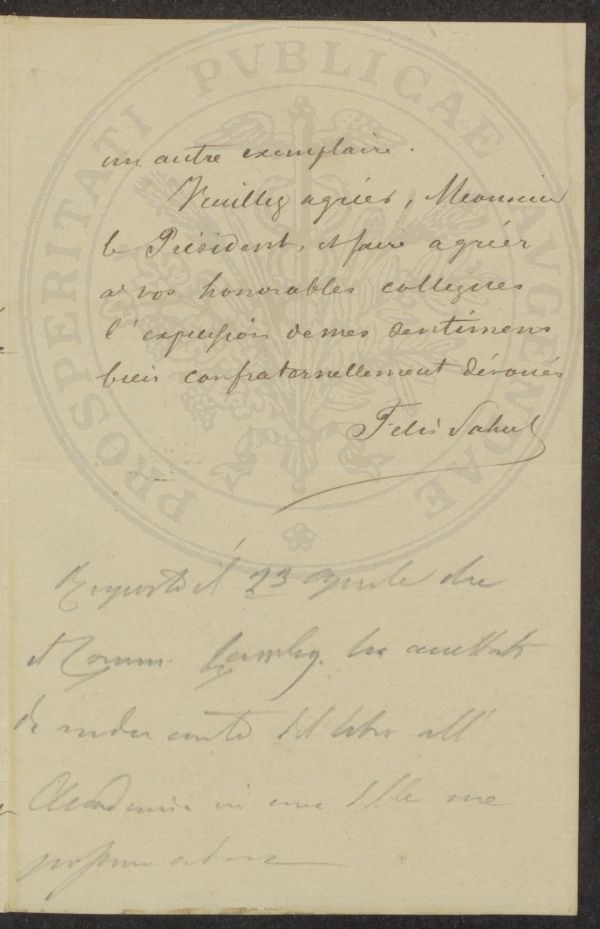 PROSPERITATI PVBLICAE AVGENDAE
un autre exemplaire.
Veuillez agréer, Monsieur
le Président, et faire agréer
à vos honorables collègues
l'expression de mes sentimens
bien confraternellement dévoués
Felix Sahut
Risposto il 23 aprile che
il Comm. ha accettato
di render conto del libro all'
Accademia in una delle sue
prossime